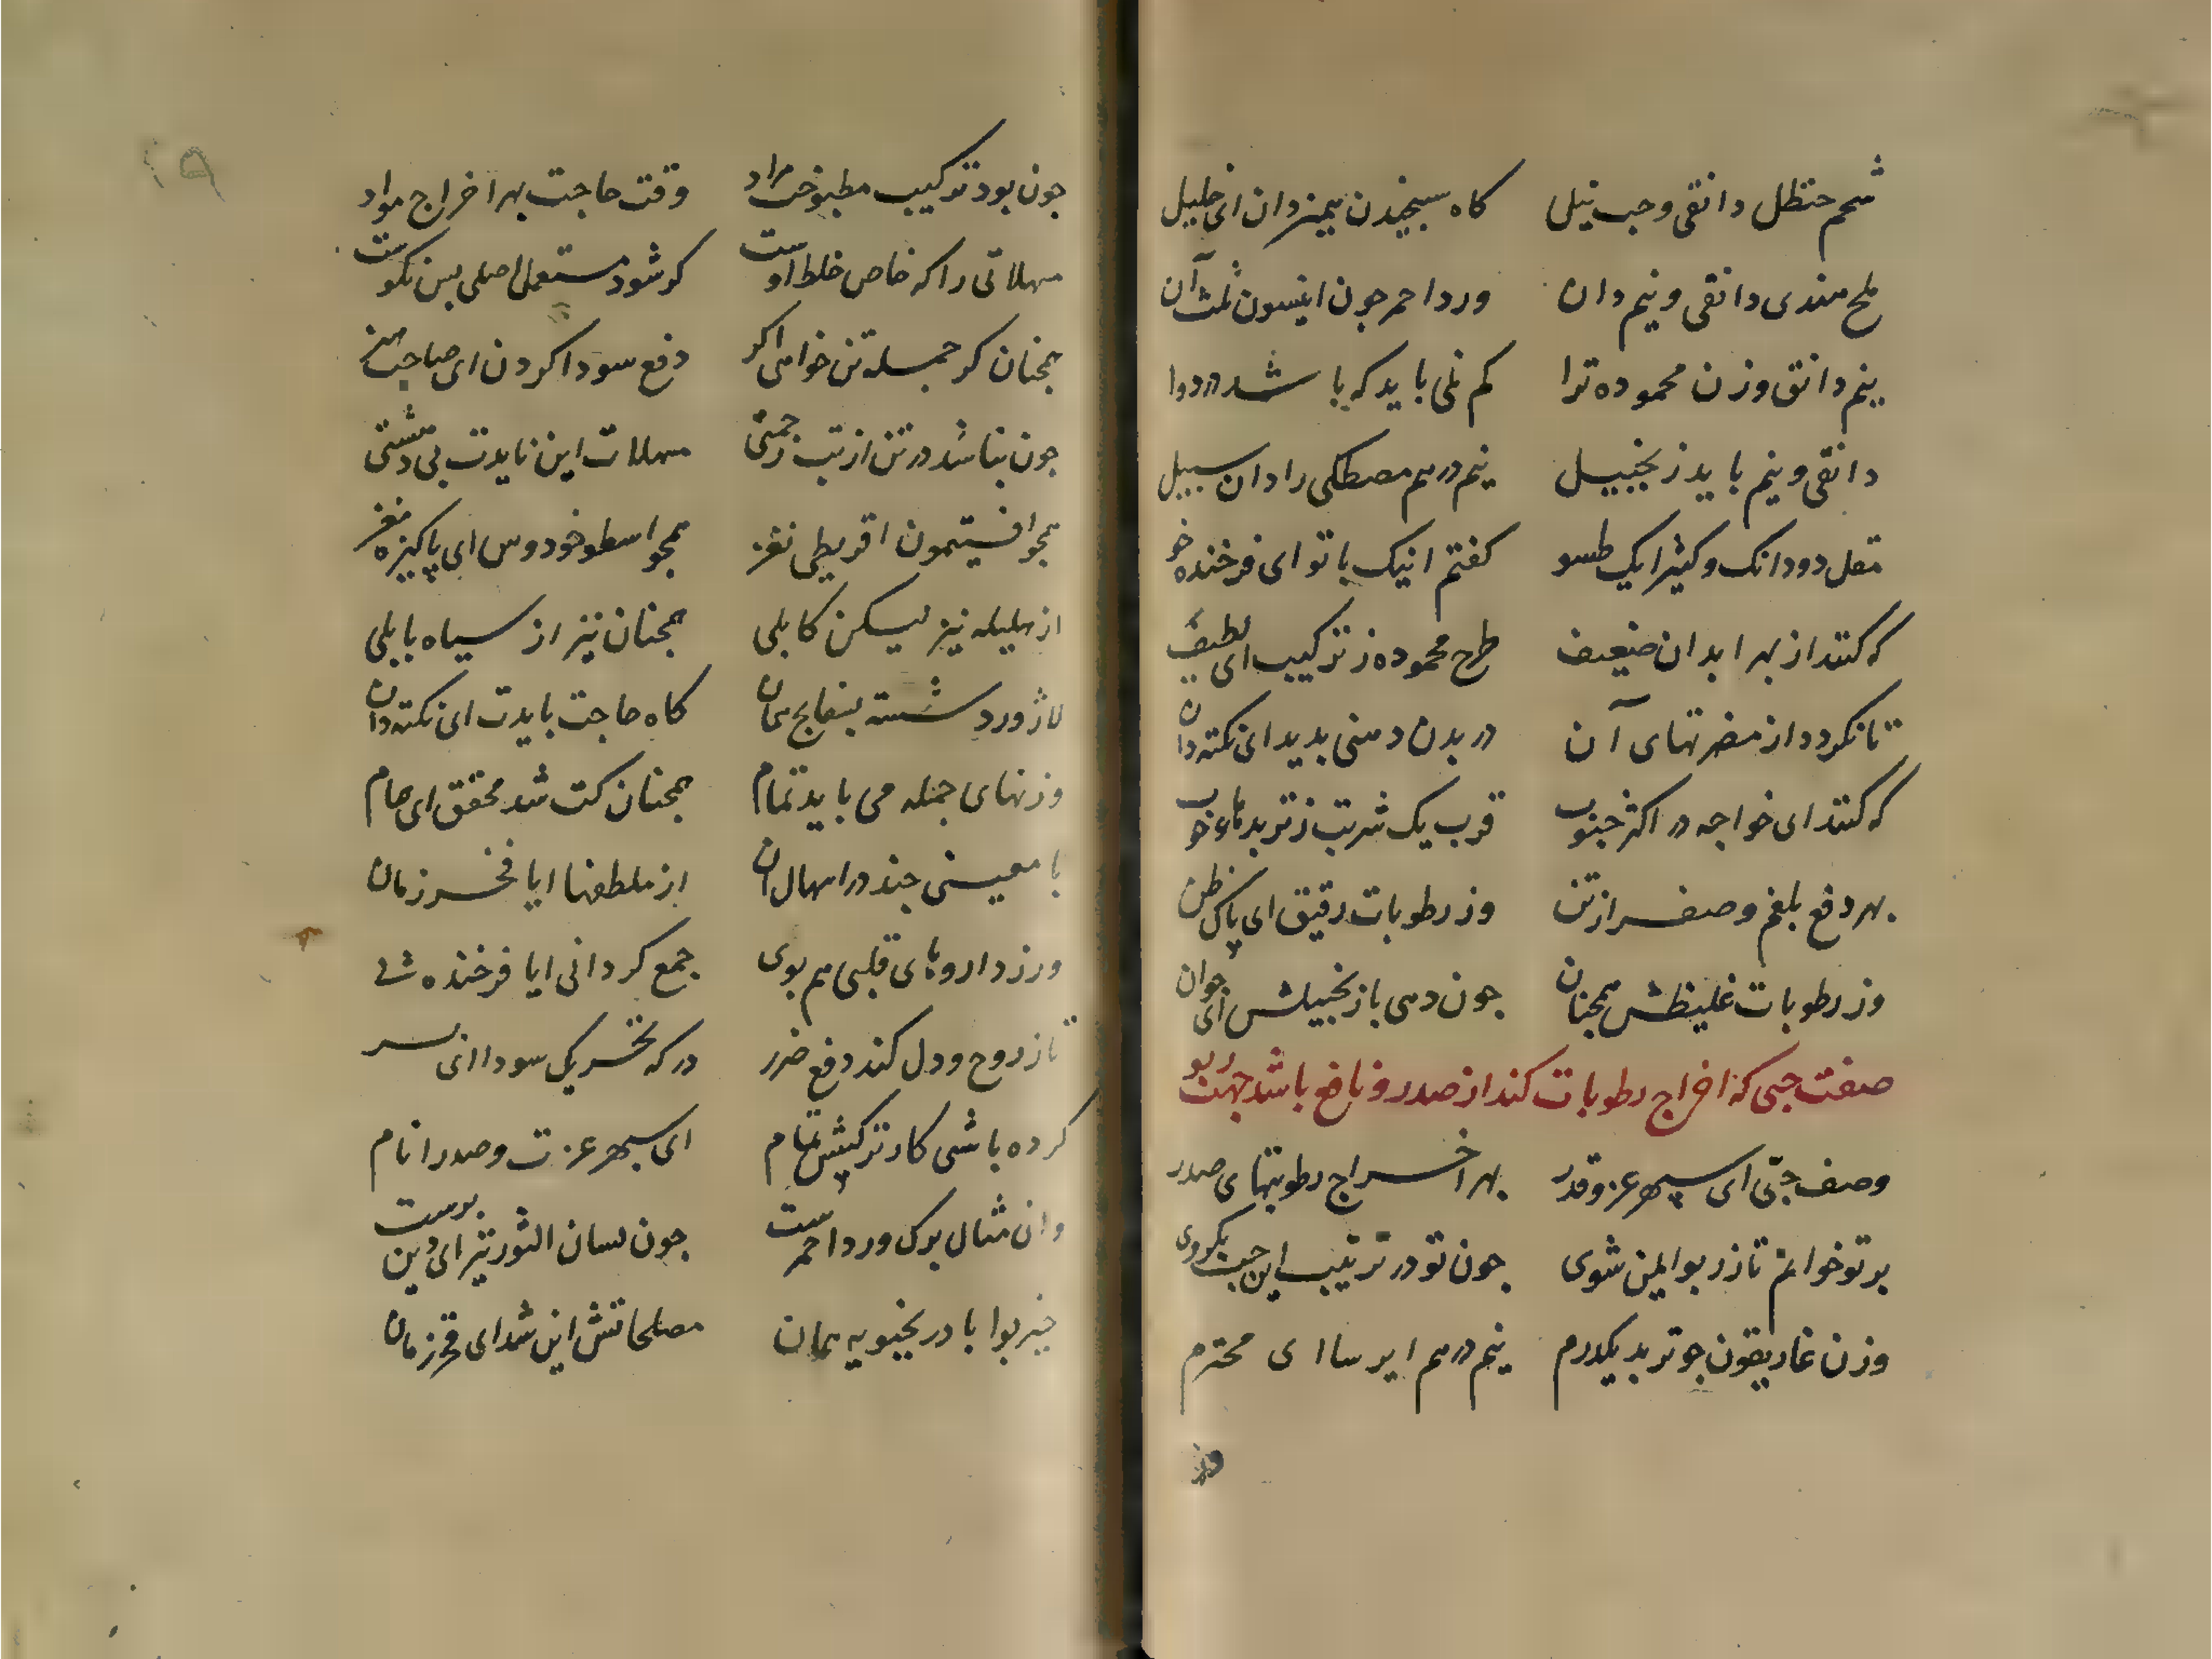 شحم حنظل دانقی و حب نیلی کاه سنجیدن همیزدان ای خلیل
ملح هندی دانقی و نیم دان ورد احمر جون انیسون ثلث آن
نیم دانق وزن محموده ترا کم نمی باید که باشد در دوا
دانقی و نیم باید زنجبیل نیم درهم مصطکی را دان سبیل
مقل دو دانک و کثیرا یک طسو کفتم اینک با تو ای فرخنده خو
که کنند از بهر ابدان ضعیف طرح محموده ز ترکیب ای لطیف
تا نکردد از مضرتهای آن در بدن وهنی بدید ای نکته دان
که کنند ای خواجه در اکثر حبوب قرب یک شربت ز تربدهاء خوب
بهر دفع بلغم و صفرا ز تن وز رطوبات رقیق ای پاک ظن
وز رطوبات غلیظش همجنان جون دهی با زنجبیلش ای جوان
صفت حبی که اخراج رطوبات کند از صدر و نافع باشد جهت ربو
وصف حبی ای سپهر عز و قدر بهر اخراج رطوبتهای صدر
بر تو خوانم تا ز ربو ایمن شوی جون تو در ترتیب این حب بکروی
وزن غاریقون جو تربد یکدرم نیم درهم ایرسا ای محترم
جون بود ترکیب مطبوخت مراد وقت حاجت بهر اخراج مواد
مسهلاتی را که خاص خلط اوست کر شود مستعمل اصلی بس نکوست
همجنان کر جمله تن خواهی اکر دفع سودا کردن ای صاحب هنر
جون نباشد در تن از تب زحمتی مسهلات این نایدت بی دهشتی
همجو افتیمون اقریطی نغز همجو اسطوخودوس ای پاکیزه مغز
از هلیله نیز لیکن کابلی همجنان نیز از سیاه بابلی
لاژورد شسته بسفایج همان کاه حاجت بایدت ای نکته دان
وزنهای جمله می باید تمام همجنان کت شد محقق ای همام
با معینی جند در اسهال آن از ملطفها ایا فخر زمان
ور ز داروهای قلبی هم بوی جمع کردانی ایا فرخنده پی
تا ز روح و دل کند دفع ضرر در که تحریک سودا ای پسر
کرده باشی کار ترکیبش تمام ای سپهر عزت و صدر انام
وان مثال برک ورد احمرست جون لسان الثور نیز ای دین برست
خیربوا بادرنجبویه همان مصلحاتش این شد ای فخر زمان